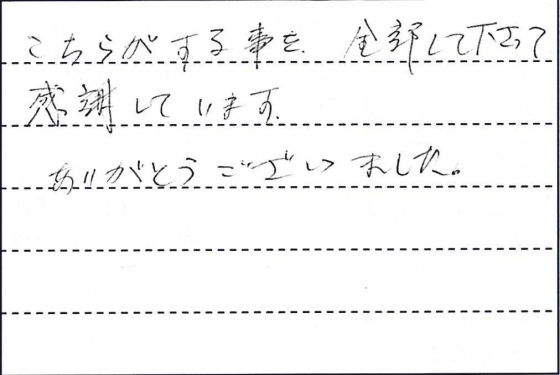 こちらがする事を、全部して下さって
感謝しています。
ありがとうございました。